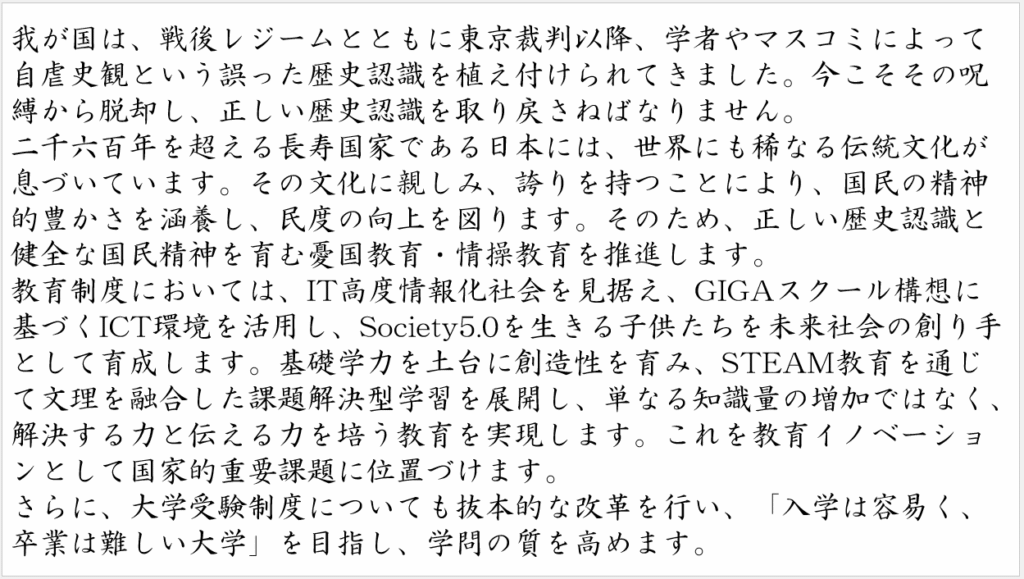 我が国は、戦後レジームとともに東京裁判以降、学者やマスコミによって
自虐史観という誤った歴史認識を植え付けられてきました。今こそその呪
縛から脱却し、正しい歴史認識を取り戻さねばなりません。
二千六百年を超える長寿国家である日本には、世界にも稀なる伝統文化が
息づいています。その文化に親しみ、誇りを持つことにより、国民の精神
的豊かさを涵養し、民度の向上を図ります。そのため、正しい歴史認識と
健全な国民精神を育む憂国教育・情操教育を推進します。
教育制度においては、IT高度情報化社会を見据え、GIGAスクール構想に
基づくICT環境を活用し、Society5.0を生きる子供たちを未来社会の創り手
として育成します。基礎学力を土台に創造性を育み、STEAM教育を通じ
て文理を融合した課題解決型学習を展開し、単なる知識量の増加ではなく、
解決する力と伝える力を培う教育を実現します。これを教育イノベーショ
ンとして国家的重要課題に位置づけます。
さらに、大学受験制度についても抜本的な改革を行い、「入学は容易く、
卒業は難しい大学」を目指し、学問の質を高めます。